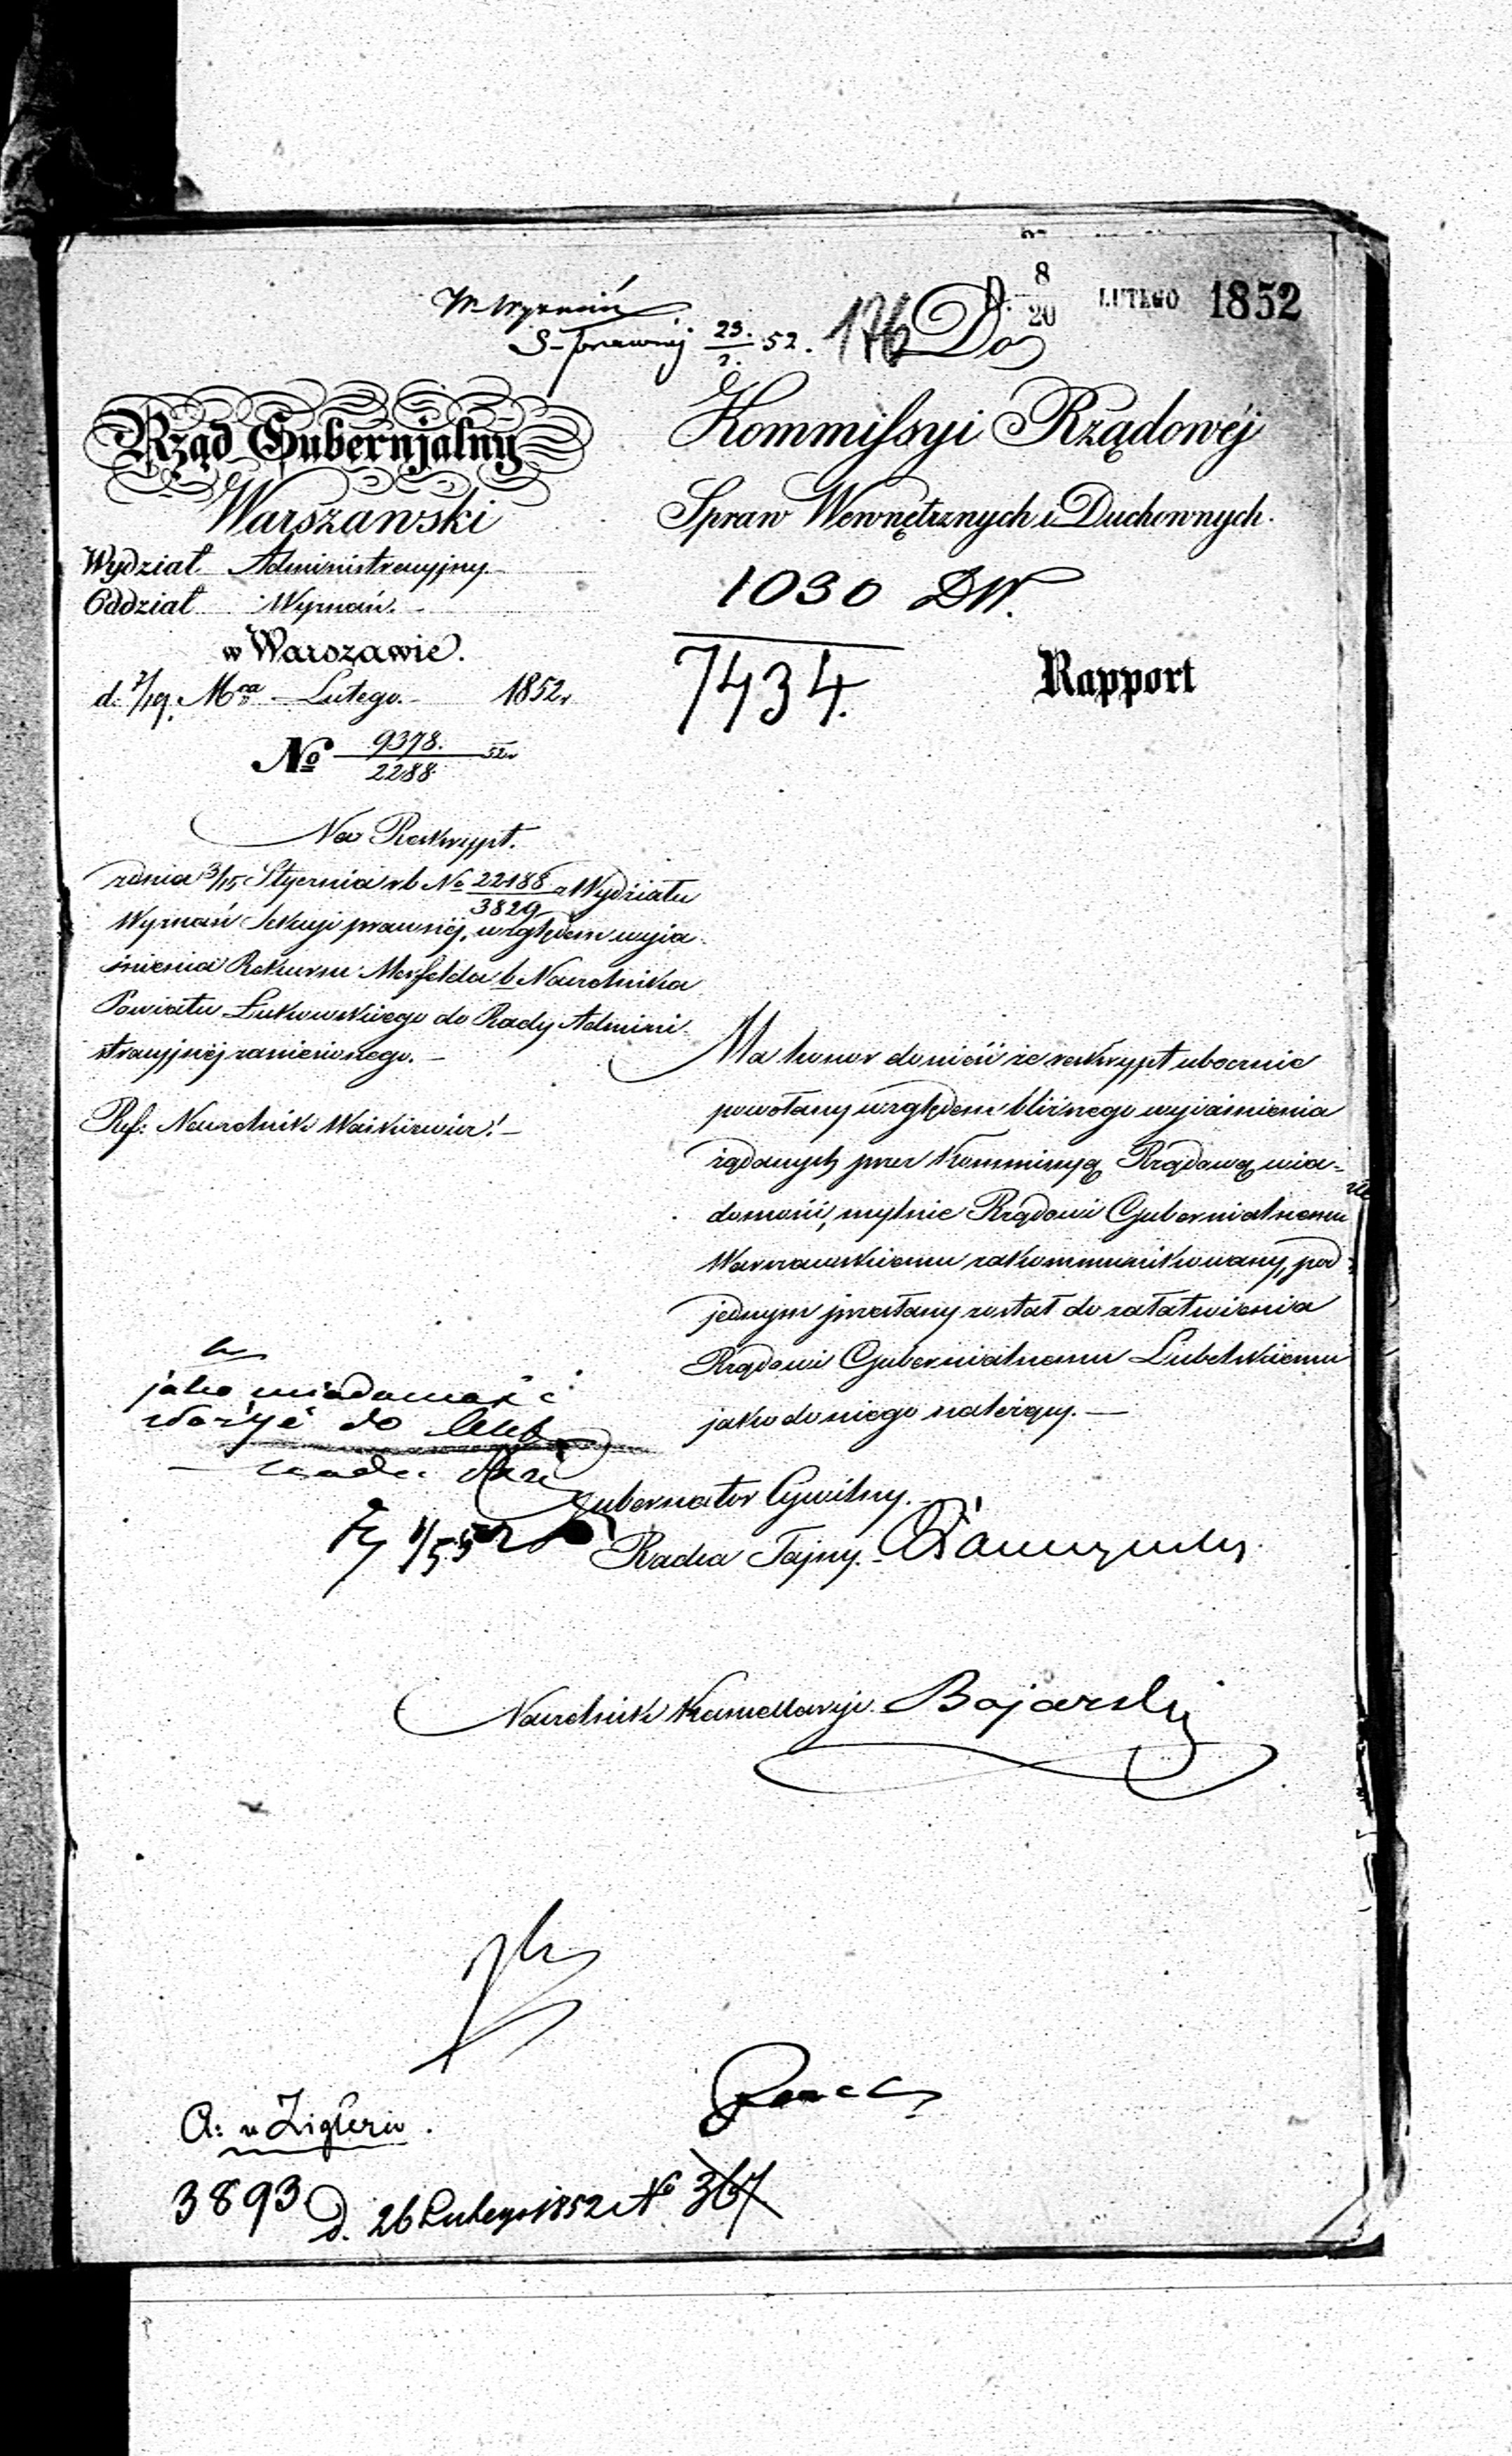 D. 8/20 LUTEGO 1852
W. Wyznań
S. prawnej 23./2. 52.
176
Do
Rząd Gubernjalny
Warszawski
Wydział Administracyjny
Oddział Wyznań.
w Warszawie.
d. 7/19. Mca Lutego. 1852r
No 9378./2288 52r
Kommissyi Rządowéj
Spraw Wewnętrznych i Duchownych.
1030 DW.
7434.
Rapport
Na Reskrypt.
z dnia 3/15 Stycznia rb No 22188/3829 z Wydziału
Wyznań Sekcyi prawnéj, względem wyja-
śnienia Rekursu Merfelda b Naczelnika
Powiatu Łukowskiego do Rady Admini-
stracyjnéj zaniesionego. —
Ref: Naczelnik Waśkiewicz. —
Ma honor donieść że reskrypt ubocznie
powołany względem bliższego wyjaśnienia
żądanych przez Kommissyą Rządową wia-
domości, mylnie Rządowi Gubernialnemu
Warszawskiemu zakommunikowany, pod
jednym przesłany został do załatwienia
Rządowi Gubernialnemu Lubelskiemu
jako do niego należący. —
jako wiadomość
złożyć do
Gubernator Cywilny.
Radca Tajny.
Naczelnik Kancellaryi Bojarski
A: u Ziglera.
3893
D. 26 Lutego 1852 No 367